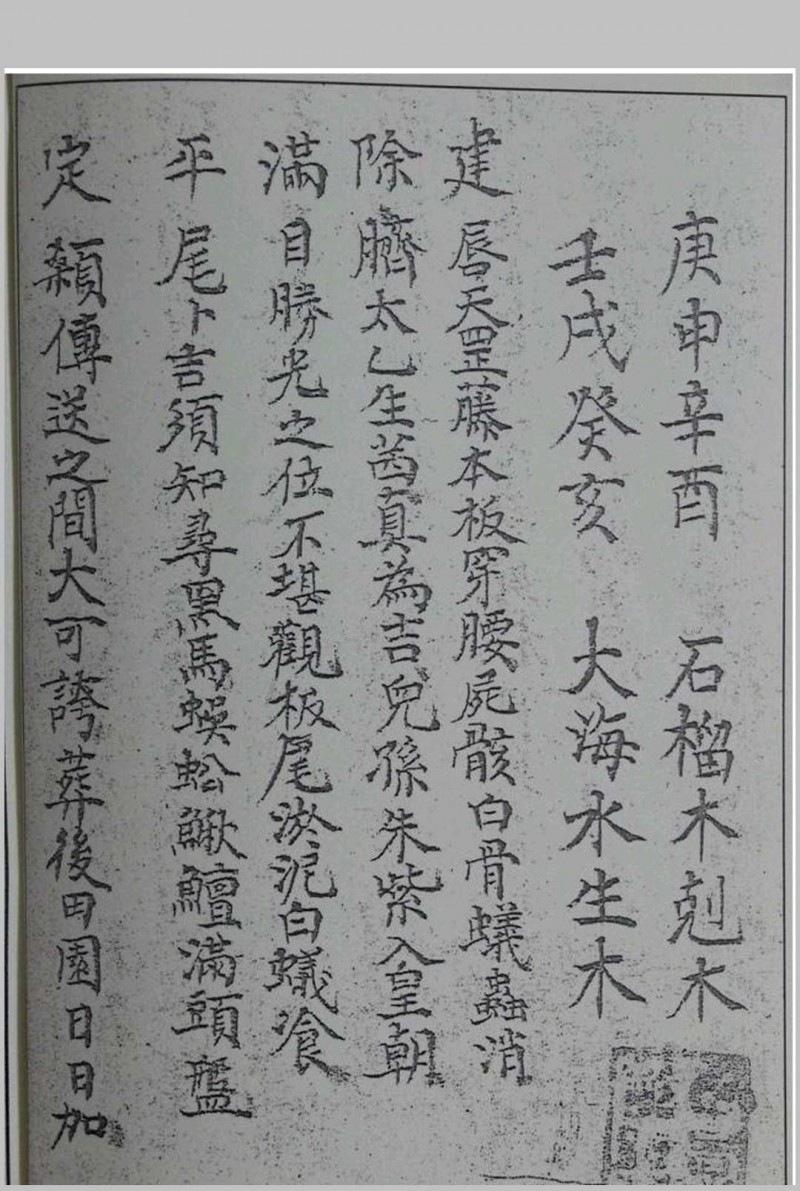 庚申辛酉　石榴木剋木
壬戌癸亥　大海水生木
建　唇天罡藤本板穿腰屍骸白骨蟻蟲消
除　臍太乙生茜真為吉兒孫朱紫入皇朝
滿　目勝光之位不堪觀板尾淤泥白蟻飡
平　尾卜言須知尋黑馬蜈蚣鰍鱣滿頭盤
定　顙傳送之間大可誇葬後田園日日加